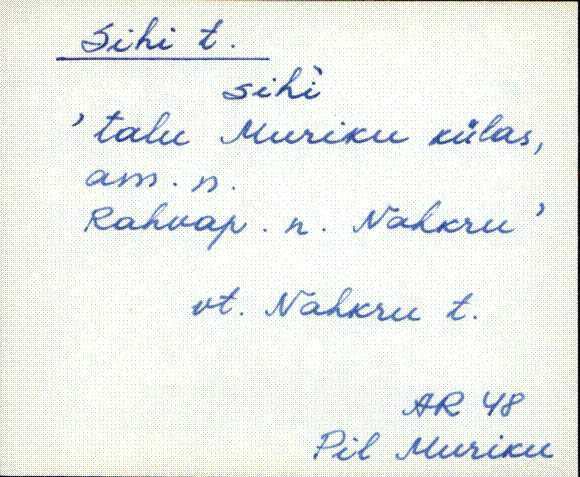 Sihi t.
sihì
'talu Muriku külas,
am. n.
Rahvap. n. Nahkru'
vt. Nahkru t.
AR 48
Pil Muriku